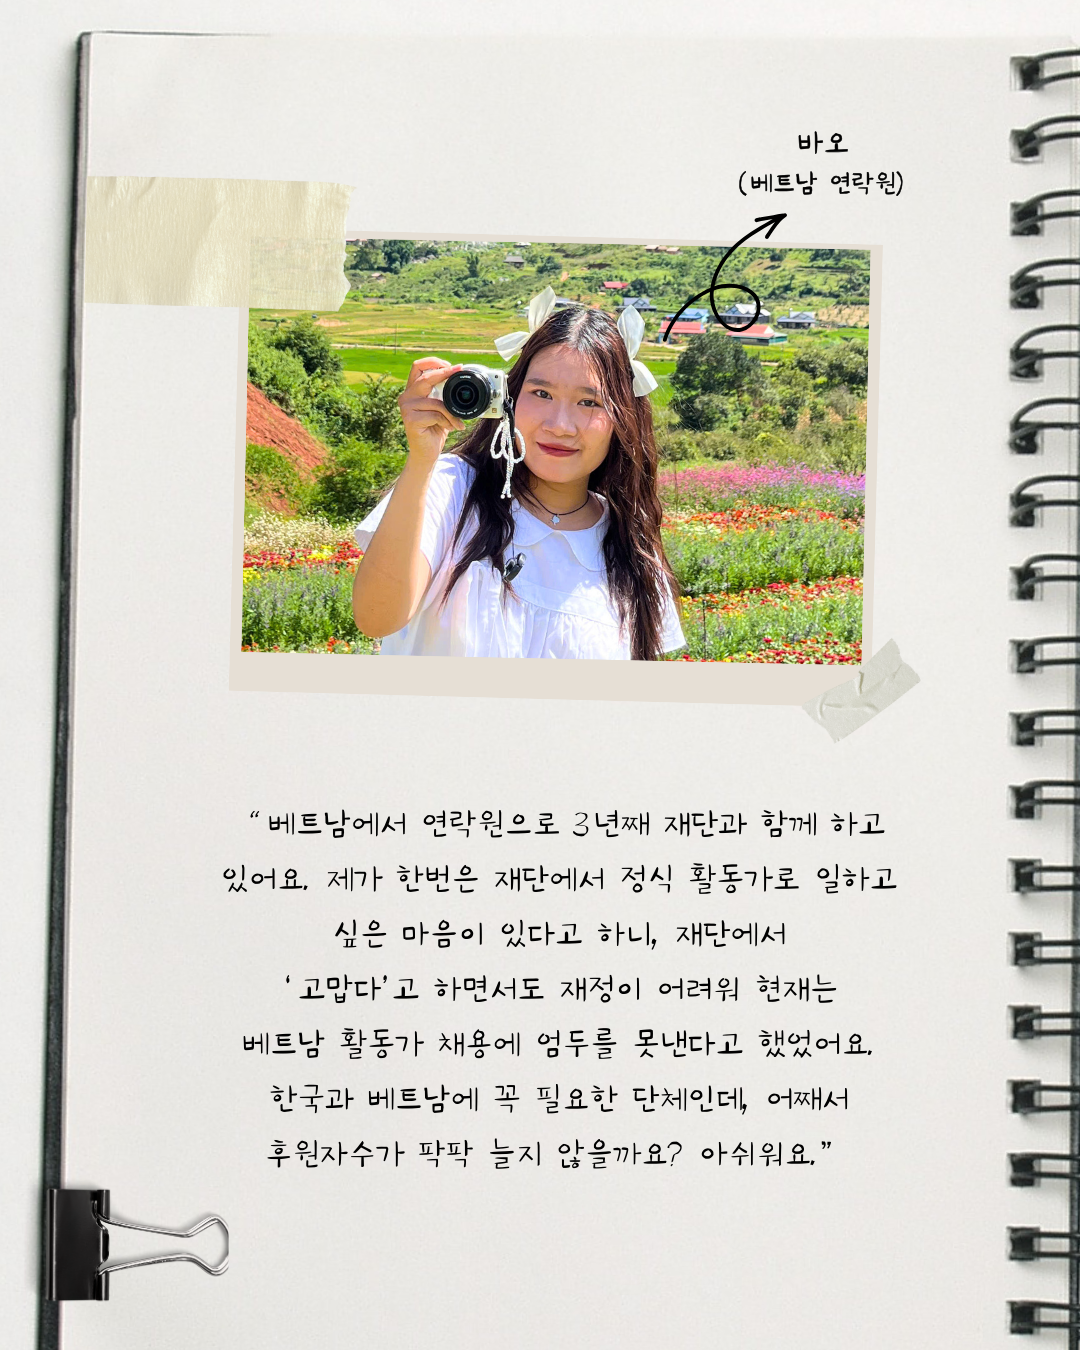 바오
(베트남 연락원)
“베트남에서 연락원으로 3년째 재단과 함께 하고
있어요. 제가 한번은 재단에서 정식 활동가로 일하고
싶은 마음이 있다고 하니, 재단에서
‘고맙다’고 하면서도 재정이 어려워 현재는
베트남 활동가 채용에 엄두를 못낸다고 했었어요.
한국과 베트남에 꼭 필요한 단체인데, 어째서
후원자수가 팍팍 늘지 않을까요? 아쉬워요.”